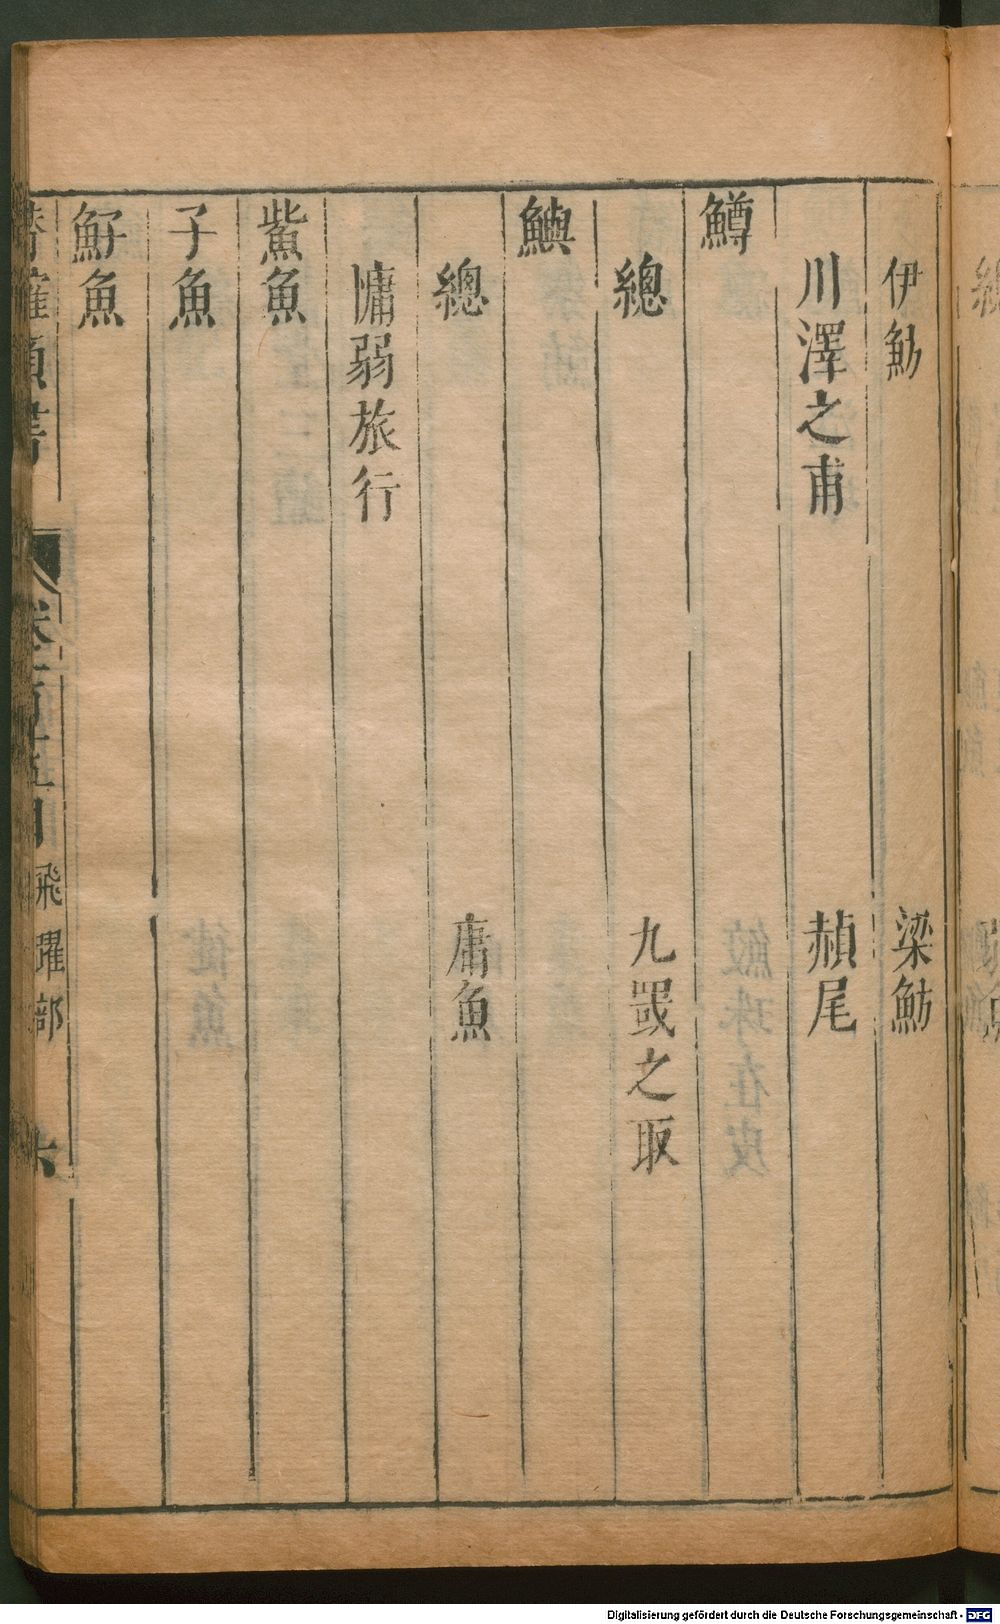 伊魴　梁魴
川澤之甫　赬尾
鱒
總　九罭之取
鱮
總　庸魚
慵弱旅行
鮆魚
子魚
魚
潛確類書　飛躍部　六
Digitalisierung gefördert durch die Deutsche Forschungsgemeinschaft - DFG